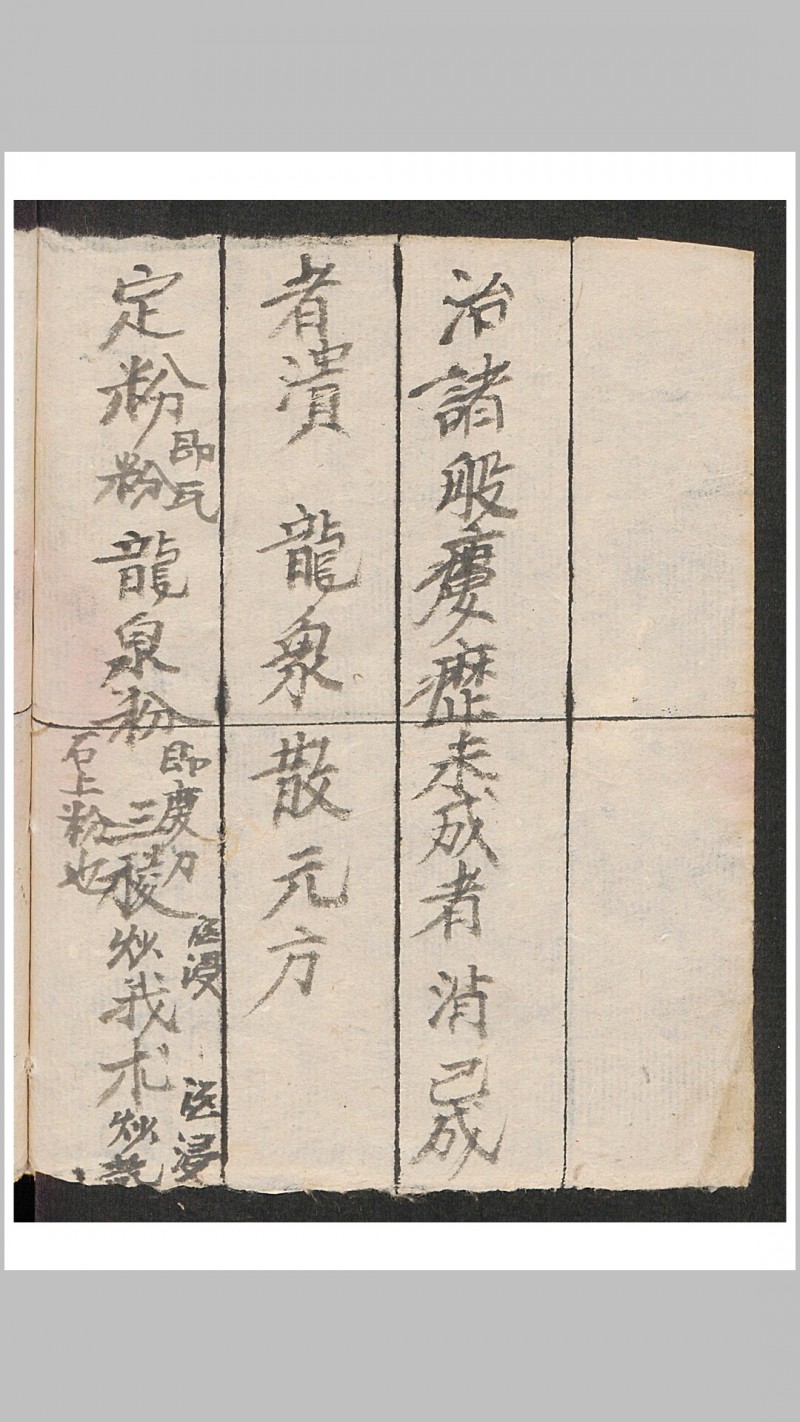 治諸般瘻癧未成者消已成
者潰 龍泉散元方
定粉即瓦粉龍泉粉即慶刀石上粉也三稜酒浸炒我术酒浸炒乾